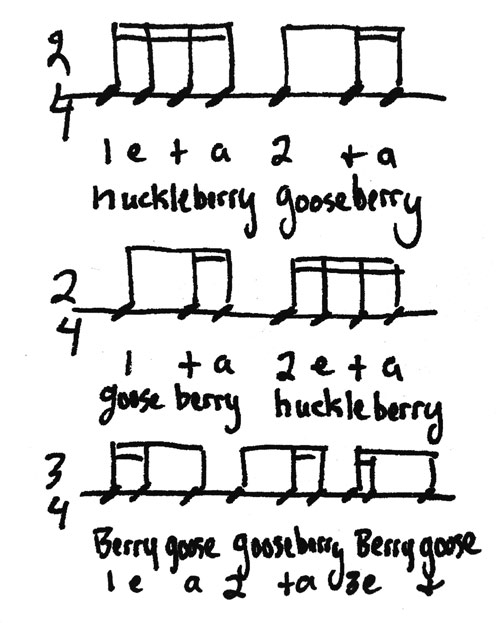 2
4
1 e + a 2 + a
huckleberry gooseberry
2
4
1 + a 2 e + a
goose berry huckleberry
3
4
Berry goose gooseberry Berry goose
1 e a 2 +a 3e +